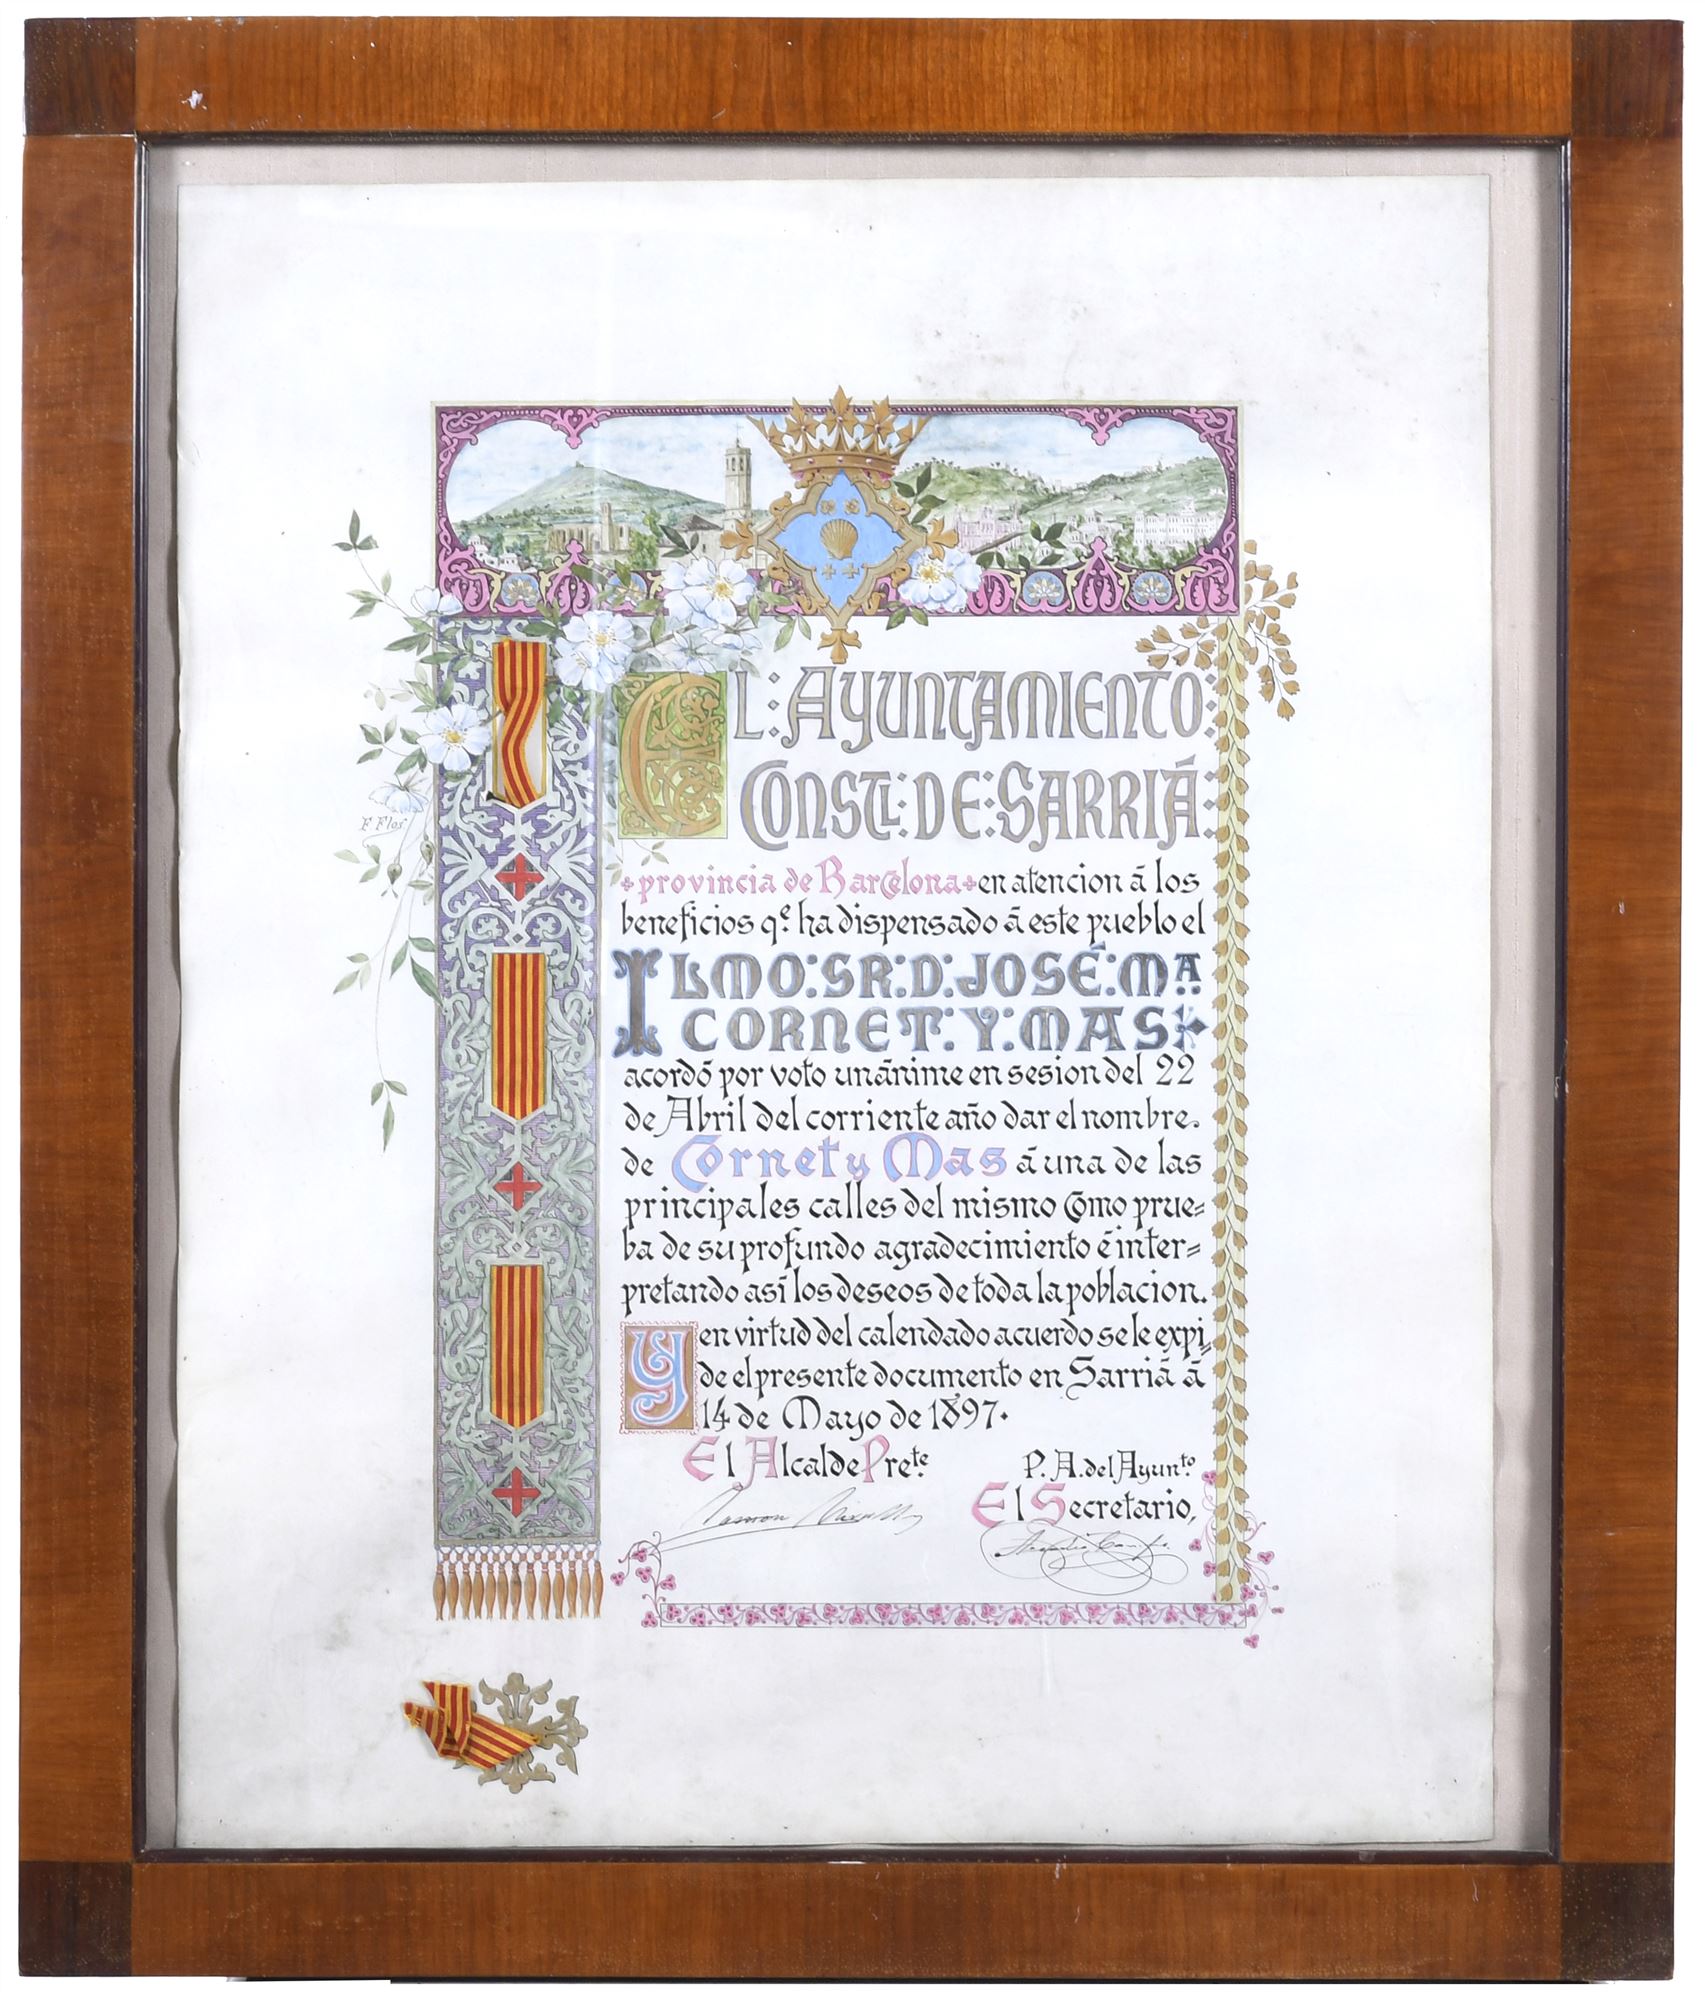 El: Ayuntamiento:
Constl: de: Sarriá:
provincia de Barcelona en atencion á los
beneficios qe. ha dispensado á este pueblo el
Ilmo: Sr: D: José: Ma.
Cornet: y: Mas
acordó por voto unánime en sesion del 22
de Abril del corriente año dar el nombre.
de Cornet y Mas á una de las
principales calles del mismo como prue=
ba de su profundo agradecimiento é inter=
pretando así los deseos de toda la poblacion.
Y en virtud del calendado acuerdo se le expi=
de el presente documento en Sarriá á
14 de Mayo de 1897.
El Alcalde Prete.
P. A. del Ayunto.
El Secretario,
F Flos